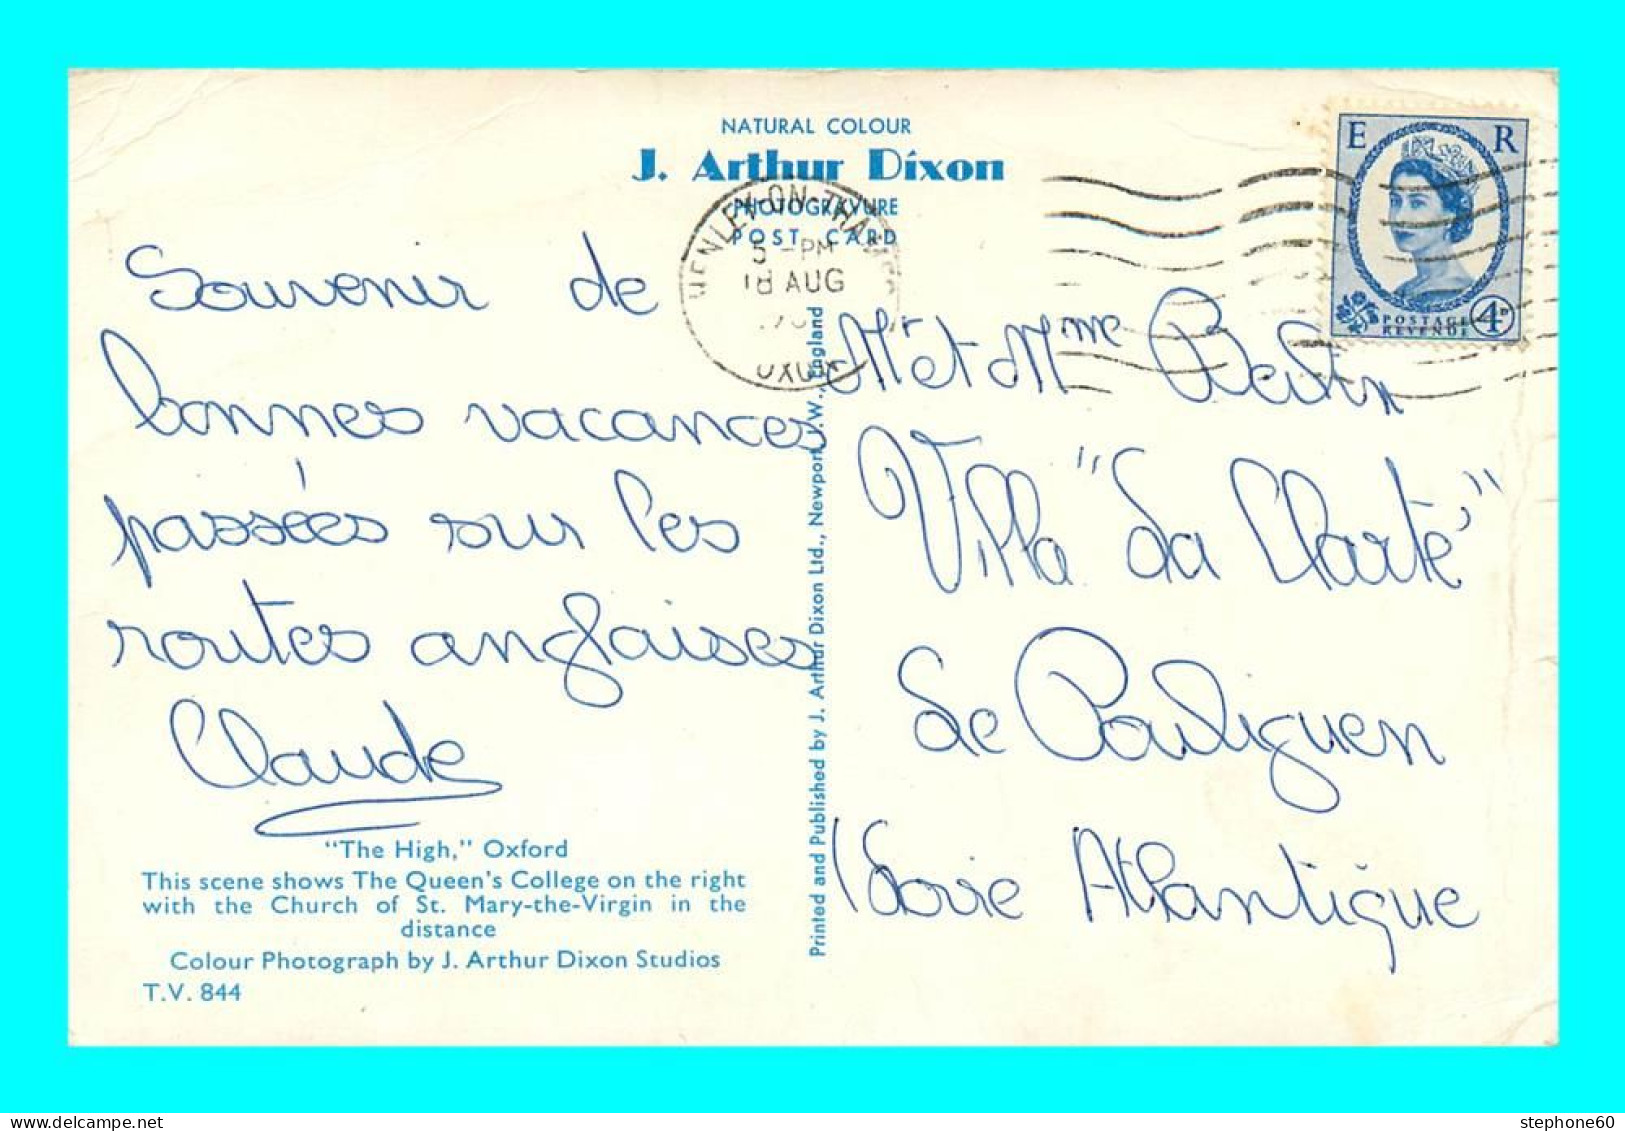 NATURAL COLOUR
J. Arthur Dixon
PHOTOGRAVURE
POST CARD
HENLEY-ON-THAMES
5 - PM
18 AUG
OXON
E R
POSTAGE
REVENUE
4D
Souvenir de
bonnes vacances
passées sur les
routes anglaises
Claude
"The High," Oxford
This scene shows The Queen's College on the right
with the Church of St. Mary-the-Virgin in the
distance
Colour Photograph by J. Arthur Dixon Studios
T.V. 844
Printed and Published by J. Arthur Dixon Ltd., Newport, I.W., England
Mr et Mme
Villa "La Clarté"
Le Pouliguen
(Loire Atlantique
stephone60